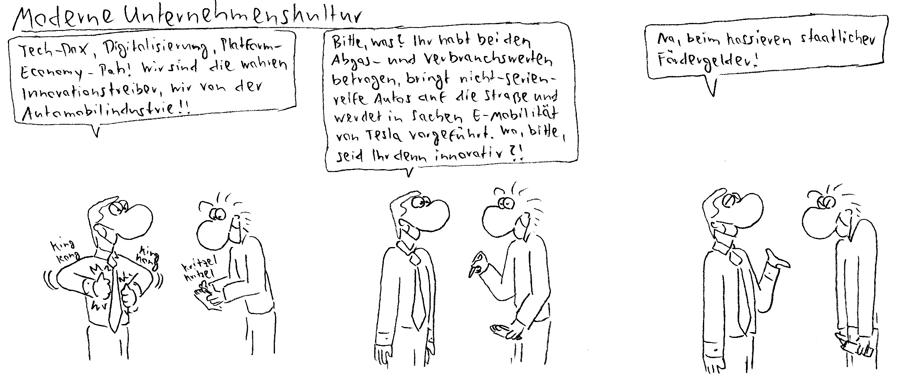 Moderne Unternehmenskultur
Tech-Dax, Digitalisierung, Platform-
Economy - Pah! Wir sind die wahren
Innovationstreiber, wir von der
Automobilindustrie!!
King
Kong
King
Kong
kritzel
kritzel
Bitte, was? Ihr habt bei den
Abgas- und Verbrauchswerten
betrogen, bringt nicht-serien-
reife Autos auf die Straße und
werdet in Sachen E-Mobilität
von Tesla vorgeführt. Wo, bitte,
seid Ihr denn innovativ?!
Na, beim kassieren staatlicher
Fördergelder!